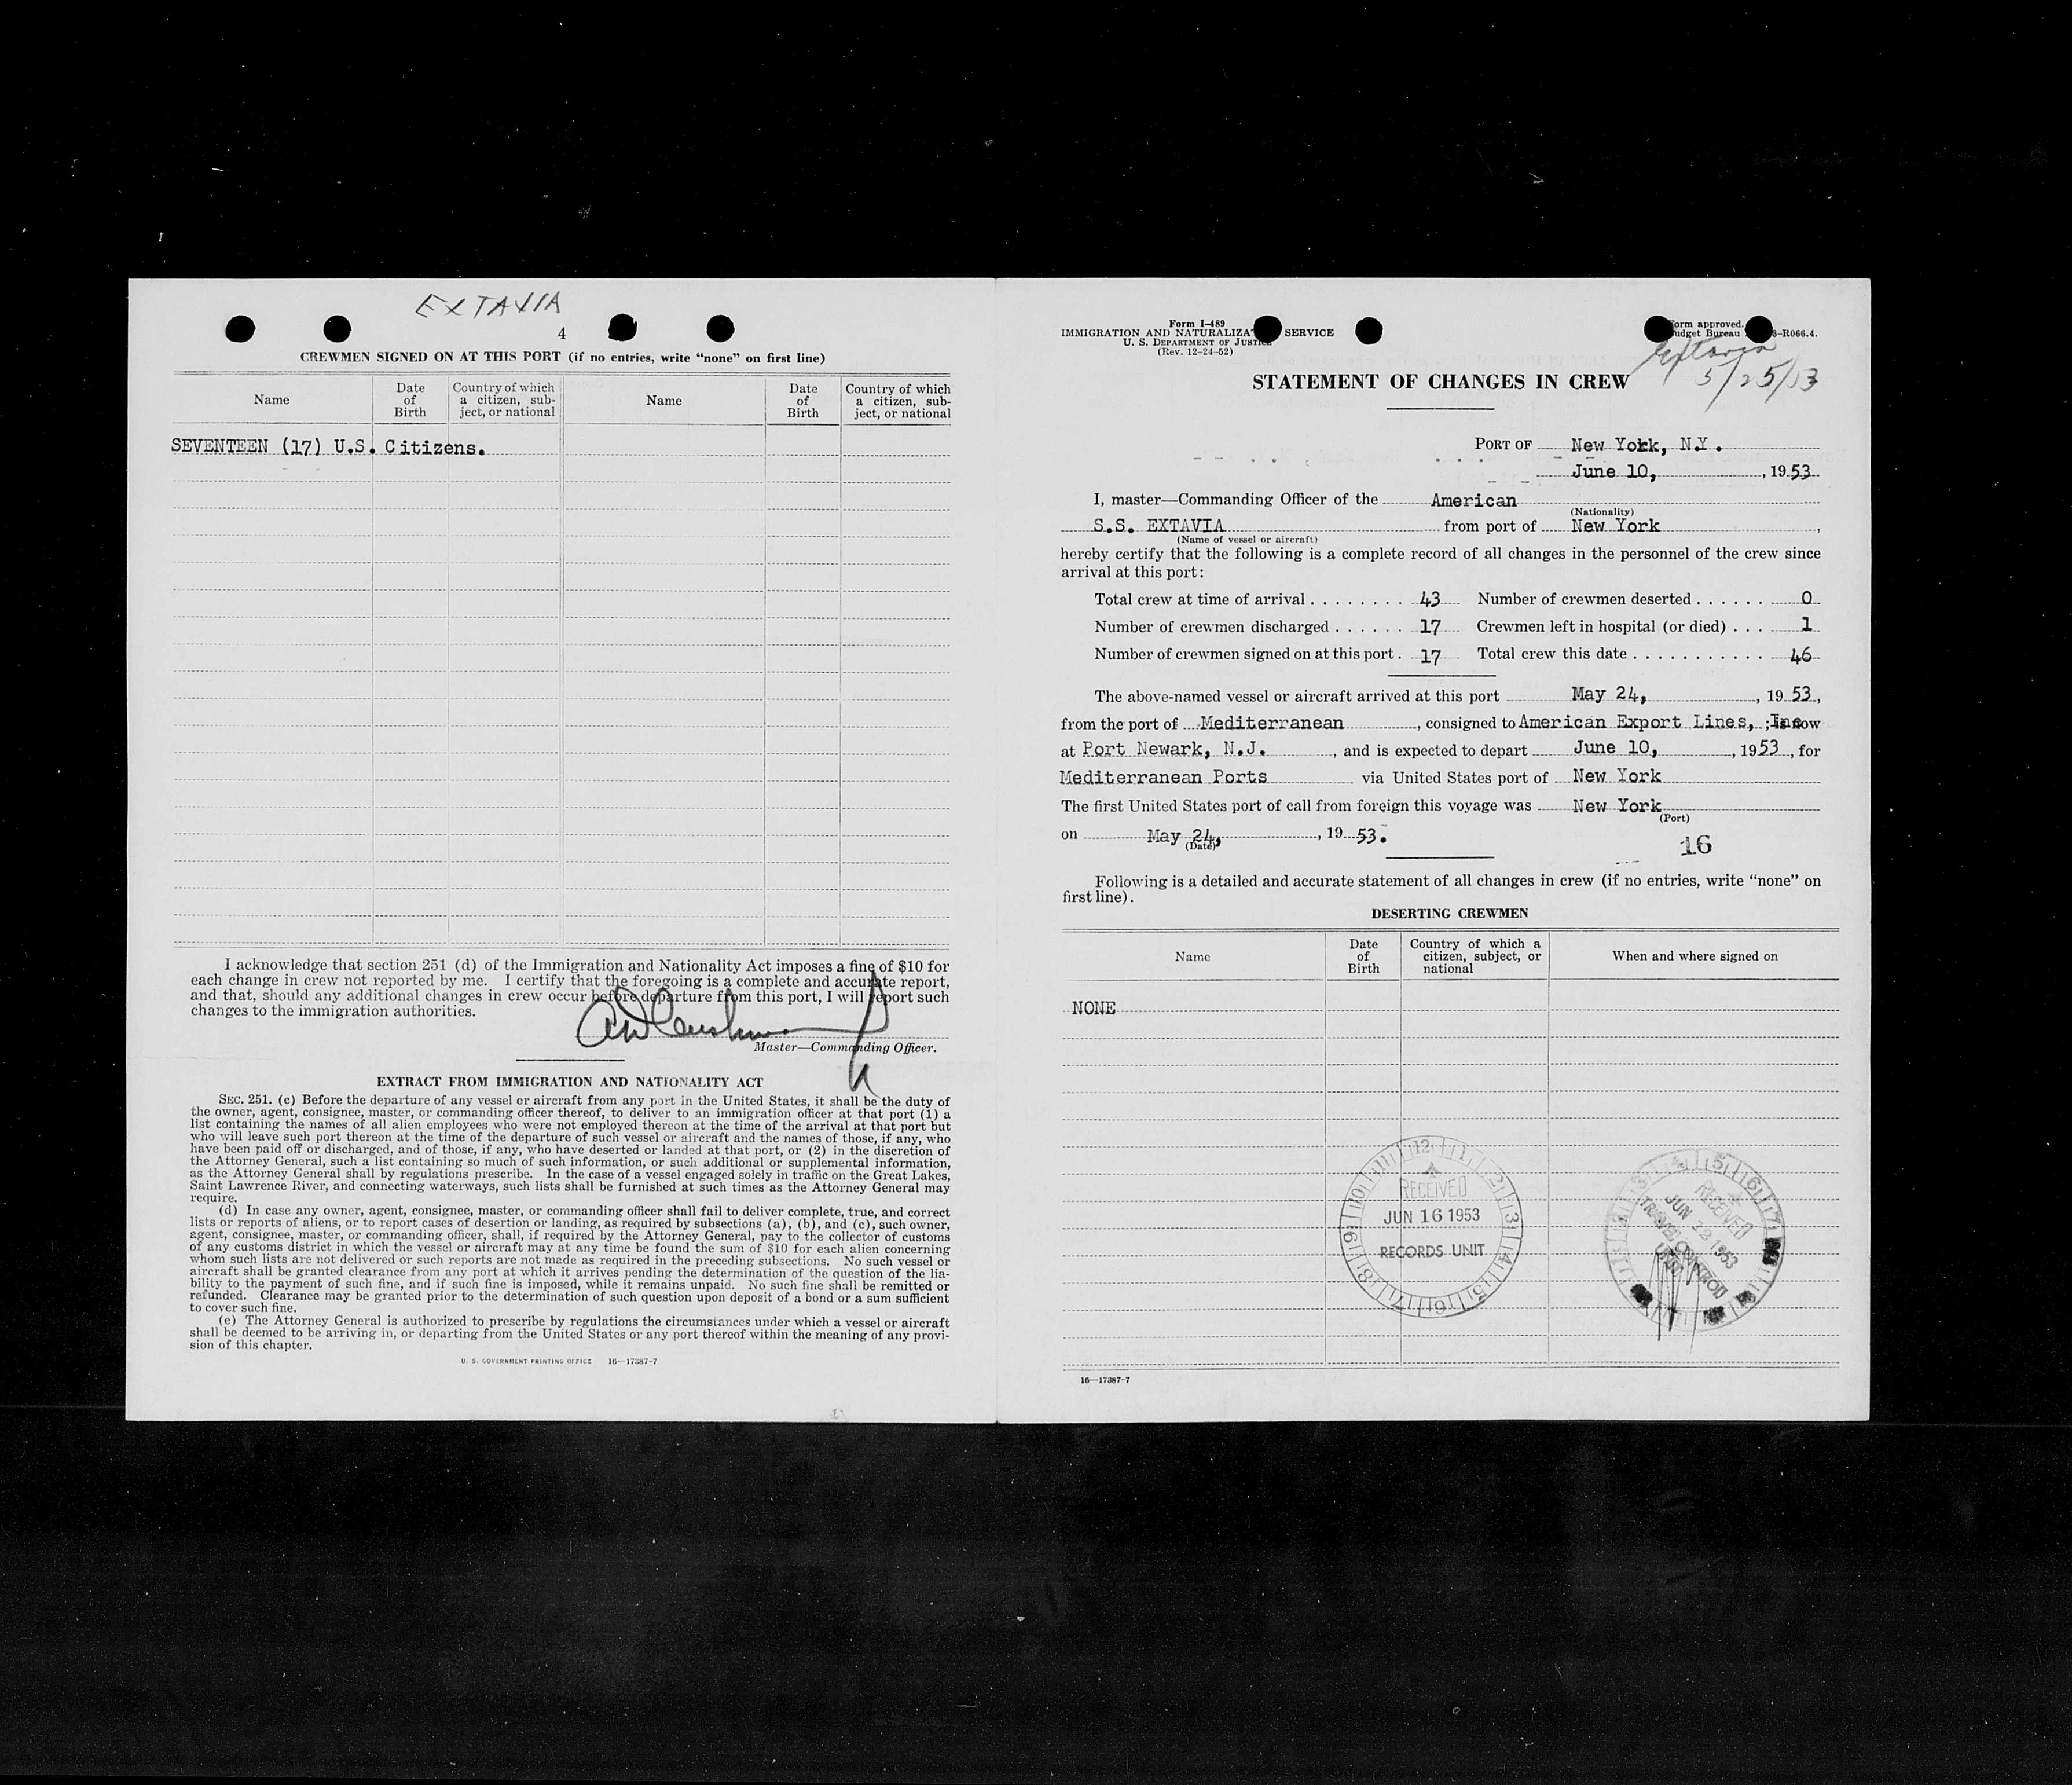 EXTAVIA
4
CREWMEN SIGNED ON AT THIS PORT (if no entries, write “none” on first line)
Name
Date of Birth
Country of which a citizen, sub-ject, or national
Name
Date of Birth
Country of which a citizen, sub-ject, or national
SEVENTEEN (17) U.S. Citizens.
I acknowledge that section 251 (d) of the Immigration and Nationality Act imposes a fine of $10 for
each change in crew not reported by me. I certify that the foregoing is a complete and accurate report,
and that, should any additional changes in crew occur before departure from this port, I will report such
changes to the immigration authorities.
Master—Commanding Officer.
EXTRACT FROM IMMIGRATION AND NATIONALITY ACT
SEC. 251. (c) Before the departure of any vessel or aircraft from any port in the United States, it shall be the duty of
the owner, agent, consignee, master, or commanding officer thereof, to deliver to an immigration officer at that port (1) a
list containing the names of all alien employees who were not employed thereon at the time of the arrival at that port but
who will leave such port thereon at the time of the departure of such vessel or aircraft and the names of those, if any, who
have been paid off or discharged, and of those, if any, who have deserted or landed at that port, or (2) in the discretion of
the Attorney General, such a list containing so much of such information, or such additional or supplemental information,
as the Attorney General shall by regulations prescribe. In the case of a vessel engaged solely in traffic on the Great Lakes,
Saint Lawrence River, and connecting waterways, such lists shall be furnished at such times as the Attorney General may
require.
(d) In case any owner, agent, consignee, master, or commanding officer shall fail to deliver complete, true, and correct
lists or reports of aliens, or to report cases of desertion or landing, as required by subsections (a), (b), and (c), such owner,
agent, consignee, master, or commanding officer, shall, if required by the Attorney General, pay to the collector of customs
of any customs district in which the vessel or aircraft may at any time be found the sum of $10 for each alien concerning
whom such lists are not delivered or such reports are not made as required in the preceding subsections. No such vessel or
aircraft shall be granted clearance from any port at which it arrives pending the determination of the question of the lia-
bility to the payment of such fine, and if such fine is imposed, while it remains unpaid. No such fine shall be remitted or
refunded. Clearance may be granted prior to the determination of such question upon deposit of a bond or a sum sufficient
to cover such fine.
(e) The Attorney General is authorized to prescribe by regulations the circumstances under which a vessel or aircraft
shall be deemed to be arriving in, or departing from the United States or any port thereof within the meaning of any provi-
sion of this chapter.
U. S. GOVERNMENT PRINTING OFFICE 16—17387-7
Form I-489
IMMIGRATION AND NATURALIZAT SERVICE
U. S. DEPARTMENT OF JUSTICE
(Rev. 12-24-52)
orm approved.
udget Bureau -R066.4.
Extavia
5/25/53
STATEMENT OF CHANGES IN CREW
PORT OF New York, N.Y.
June 10, , 1953
I, master—Commanding Officer of the American
(Nationality)
S.S. EXTAVIA from port of New York ,
(Name of vessel or aircraft)
hereby certify that the following is a complete record of all changes in the personnel of the crew since
arrival at this port:
Total crew at time of arrival . . . . . . . . 43 Number of crewmen deserted . . . . . . 0
Number of crewmen discharged . . . . . . 17 Crewmen left in hospital (or died) . . . 1
Number of crewmen signed on at this port . 17 Total crew this date . . . . . . . . . . . 46
The above-named vessel or aircraft arrived at this port May 24, , 1953,
from the port of Mediterranean , consigned to American Export Lines, Inc ; is now
at Port Newark, N.J. , and is expected to depart June 10, , 1953 , for
Mediterranean Ports via United States port of New York
The first United States port of call from foreign this voyage was New York
(Port)
on May 24, , 1953.
(Date)
16
Following is a detailed and accurate statement of all changes in crew (if no entries, write “none” on
first line).
DESERTING CREWMEN
Name
Date of Birth
Country of which a citizen, subject, or national
When and where signed on
NONE
RECEIVED
JUN 16 1953
RECORDS UNIT
RECEIVED
JUN 22 1953
TRAVEL CONTROL
UNIT
16—17387-7